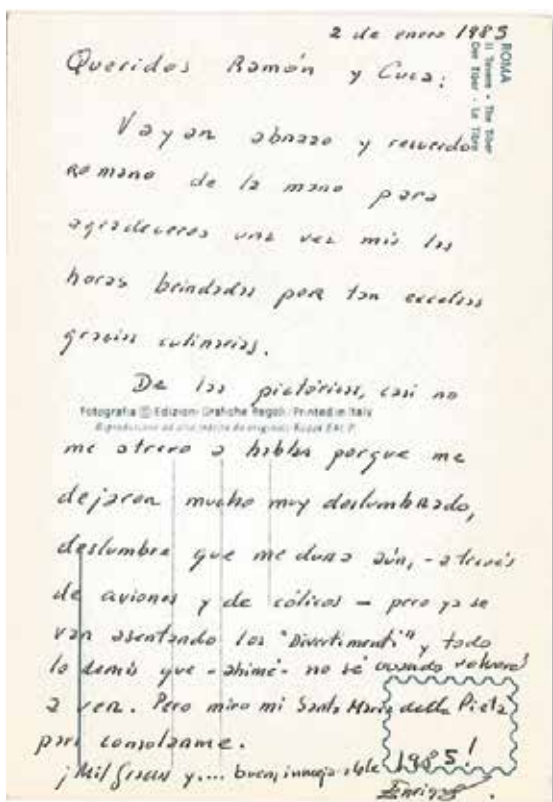 2 de enero 1985
ROMA
Il Tevere - The Tiber
Der Tiber - Le Tibre
Queridos Ramón y Cuca:
Vayan abrazo y recuerdo
romano de la mano para
agradeceros una vez más las
horas brindadas por tan excelsas
gracias culinarias.
De las pictóricas, casi no
Fotografia Edizioni Grafiche Regoli - Printed in Italy
me atrevo a hablar porque me
dejaron mucho muy deslumbrado,
deslumbre que me dura aún, - a través
de aviones y de cólicos - pero ya se
van asentando los "Divertimenti" y todo
lo demás que - ahimé - no sé cuando volveré
a ver. Pero miro mi Santa Maria della Pietà
para consolarme.
¡Mil gracias y.... buen,
1985!
Enrique.